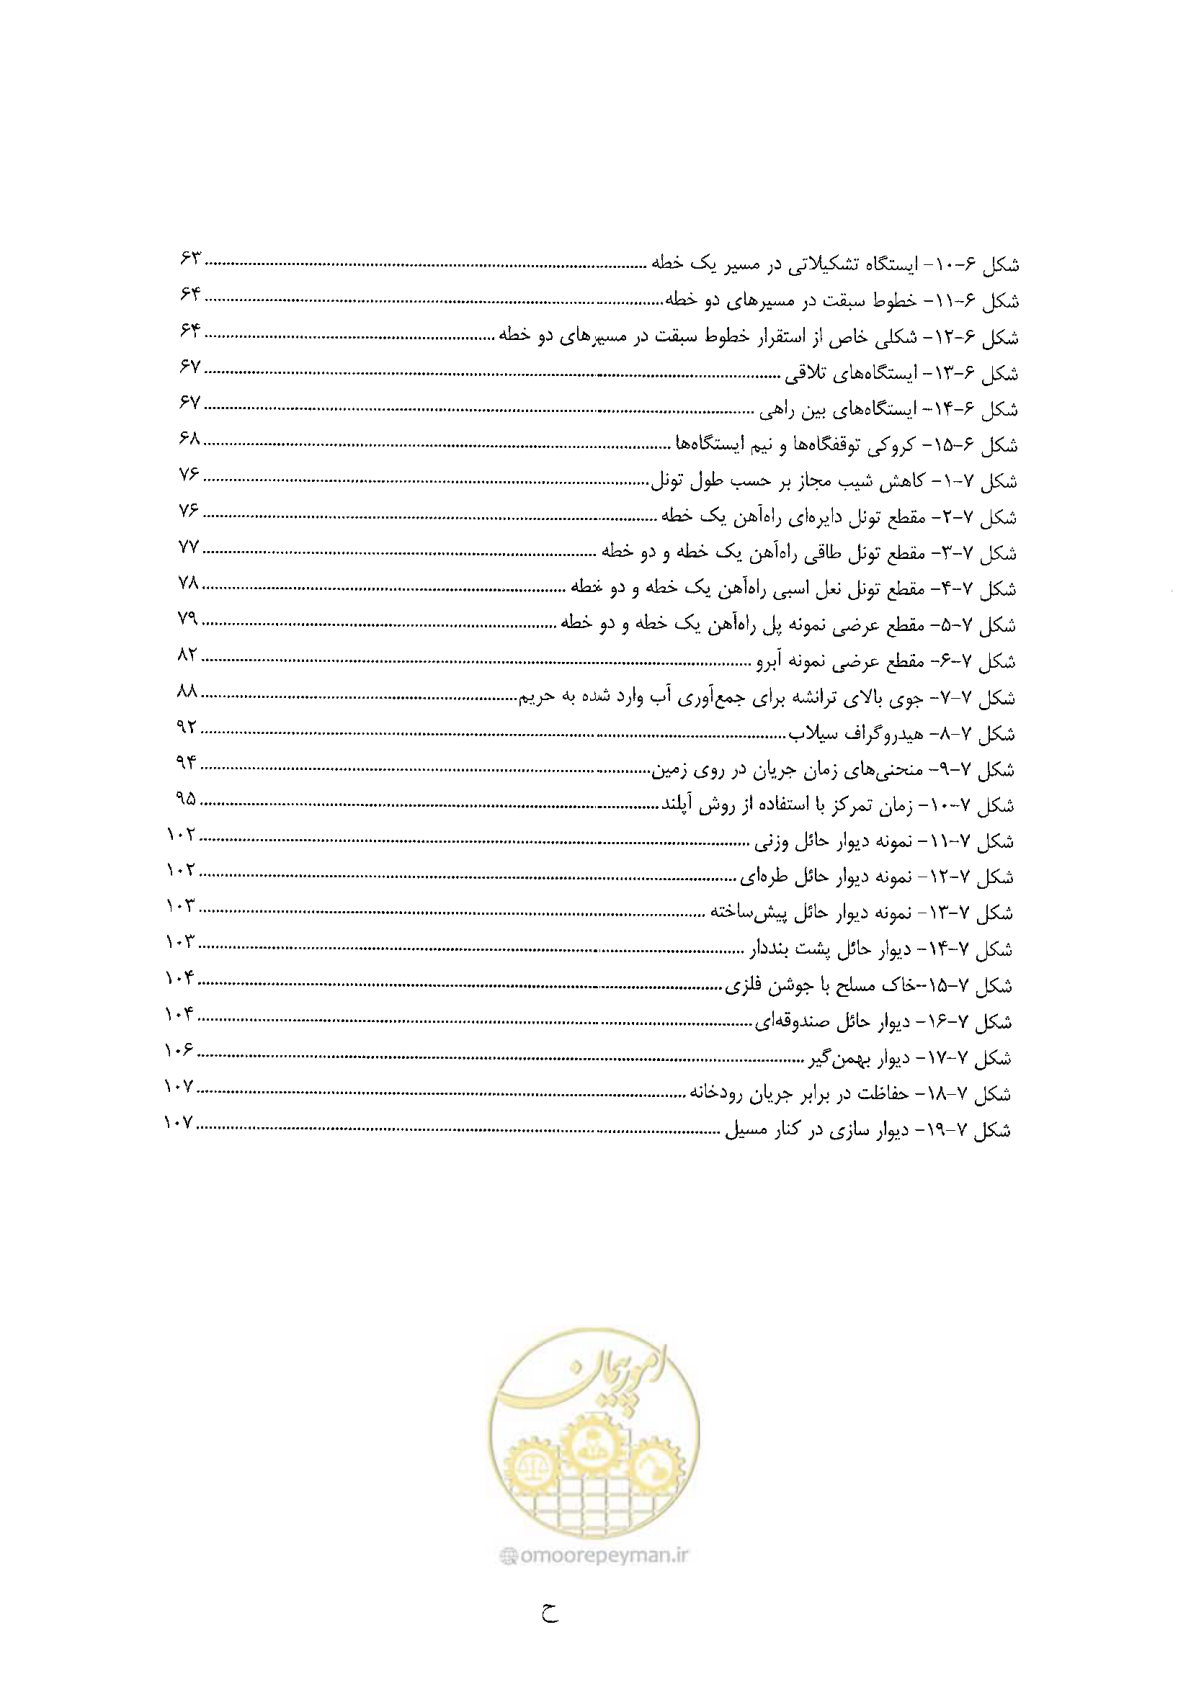 شکل ۶-۱۰- ایستگاه تشکیلاتی در مسیر یک خطه ........ ۶۳
شکل ۶-۱۱- خطوط سبقت در مسیرهای دو خطه ........ ۶۴
شکل ۶-۱۲- شکلی خاص از استقرار خطوط سبقت در مسیرهای دو خطه ........ ۶۴
شکل ۶-۱۳- ایستگاه‌های تلاقی ........ ۶۷
شکل ۶-۱۴- ایستگاه‌های بین راهی ........ ۶۷
شکل ۶-۱۵- کروکی توقفگاه‌ها و نیم ایستگاه‌ها ........ ۶۸
شکل ۷-۱- کاهش شیب مجاز بر حسب طول تونل ........ ۷۶
شکل ۷-۲- مقطع تونل دایره‌ای راه‌آهن یک خطه ........ ۷۶
شکل ۷-۳- مقطع تونل طاقی راه‌آهن یک خطه و دو خطه ........ ۷۷
شکل ۷-۴- مقطع تونل نعل اسبی راه‌آهن یک خطه و دو خطه ........ ۷۸
شکل ۷-۵- مقطع عرضی نمونه پل راه‌آهن یک خطه و دو خطه ........ ۷۹
شکل ۷-۶- مقطع عرضی نمونه آبرو ........ ۸۲
شکل ۷-۷- جوی بالای ترانشه برای جمع‌آوری آب وارد شده به حریم ........ ۸۸
شکل ۷-۸- هیدروگراف سیلاب ........ ۹۲
شکل ۷-۹- منحنی‌های زمان جریان در روی زمین ........ ۹۴
شکل ۷-۱۰- زمان تمرکز با استفاده از روش آپلند ........ ۹۵
شکل ۷-۱۱- نمونه دیوار حائل وزنی ........ ۱۰۲
شکل ۷-۱۲- نمونه دیوار حائل طره‌ای ........ ۱۰۲
شکل ۷-۱۳- نمونه دیوار حائل پیش‌ساخته ........ ۱۰۳
شکل ۷-۱۴- دیوار حائل پشت بنددار ........ ۱۰۳
شکل ۷-۱۵-خاک مسلح با جوشن فلزی ........ ۱۰۴
شکل ۷-۱۶- دیوار حائل صندوقه‌ای ........ ۱۰۴
شکل ۷-۱۷- دیوار بهمن‌گیر ........ ۱۰۶
شکل ۷-۱۸- حفاظت در برابر جریان رودخانه ........ ۱۰۷
شکل ۷-۱۹- دیوار سازی در کنار مسیل ........ ۱۰۷
امور پیمان
omoorepeyman.ir
ح